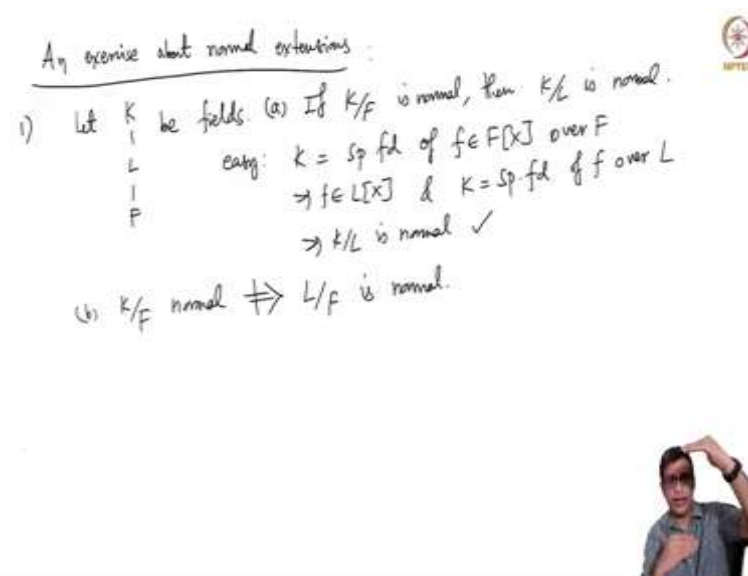 An exercise about normal extensions :
1) Let K | L | F be fields. (a) If K/F is normal, then K/L is normal.
easy: K = sp fd of f ∈ F[X] over F
⇒ f ∈ L[X] & K = sp. fd of f over L
⇒ K/L is normal ✓
(b) K/F normal ⇏ L/F is normal.
NPTEL